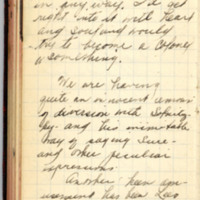 in any way. I'd get
right into it with heart
and soul and would
try to become a Colonel
or something.
We are having
quite an innocent
of diversion with
and his
way of saying Sure
and other peculiar
expressions.
Another keen
has been